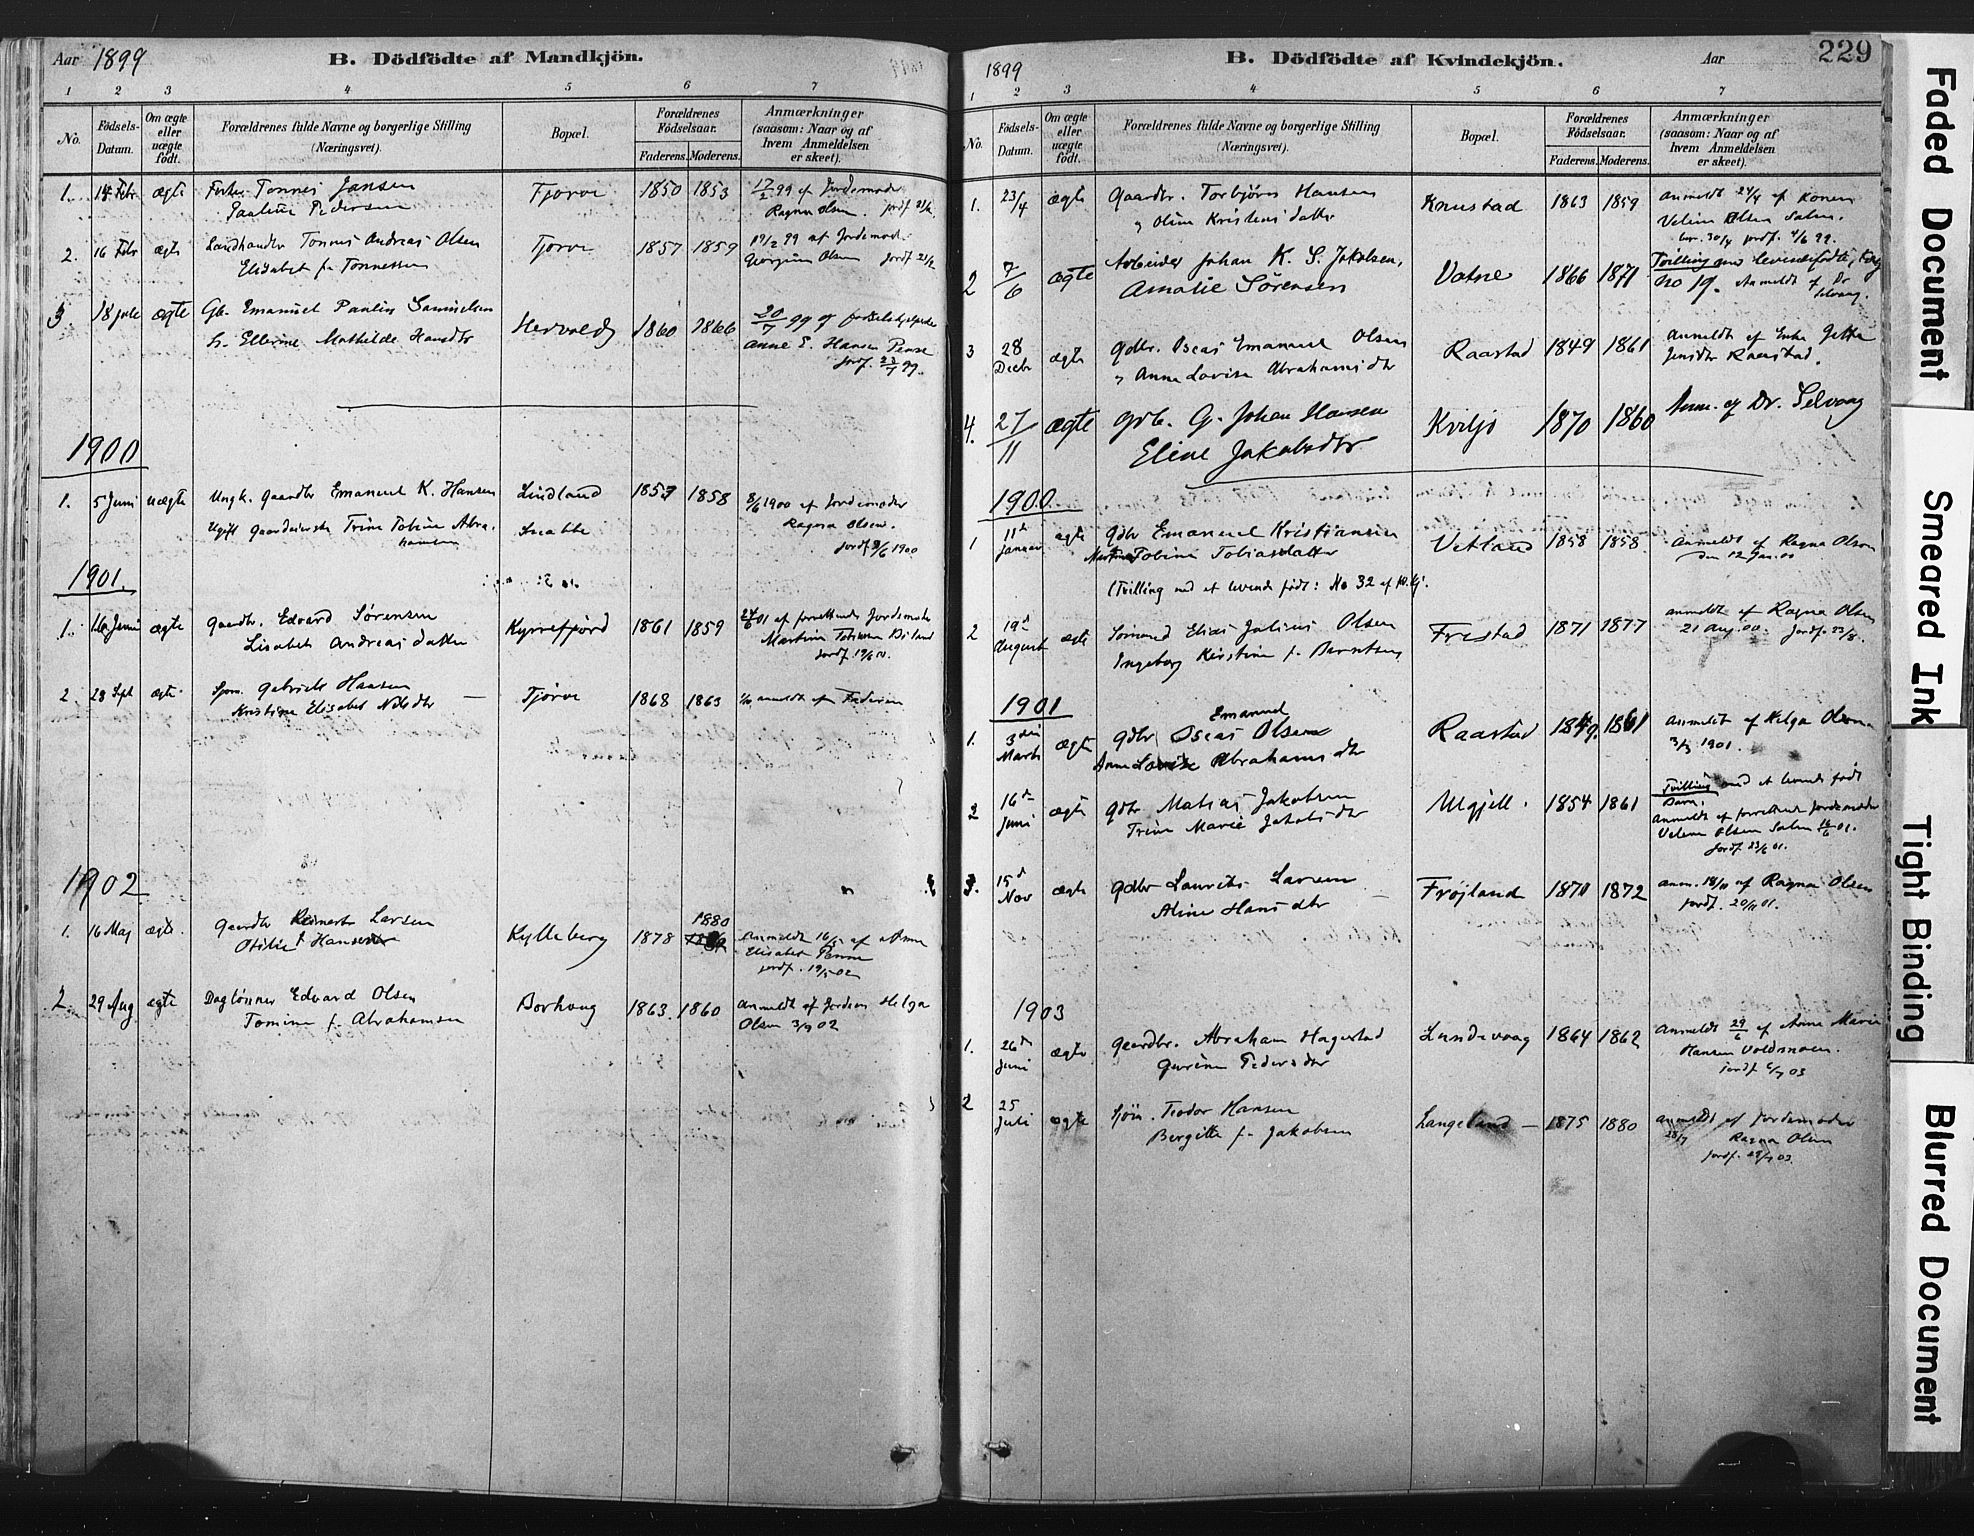 Aar 1899
B. Dödfödte af Mandkjön.
1 2 3 4 5 6 7
No.
Födsels-
Datum.
Om ægte
eller
uægte
födt.
Forældrenes fulde Navne og borgerlige Stilling
(Næringsvei).
Bopæl.
Forældrenes
Födselsaar.
Faderens. Moderens.
Anmærkninger
(saasom: Naar og af
hvem Anmeldelsen
er skeet).
1. 14 Febr ægte Tønnes Jansen Tjorve 1850 1853 17/2 99 af Jordemoder
Pauline Pedersen Ragna Olsen. jordf.
2. 16 Febr ægte Landhandler Tønnes Andreas Olsen Tjorve 1857 1859 19/2 99 af Jordemod.
Elisabet f. Tønnessen Georgine Olsen jordf
3 18 Jule ægte Gb. Emanuel Paulin Samuelsen Hervold 1860 1866 20/7 99 af
h. Ellerine Mathilde Hansdtr Anne E. Hansen Penne
jordf. 23/7 99.
1900
1. 5 Juni uægte Ungk. Gaardbr Emanuel K. Hansen Lindland 1857 1858 8/6 1900 af Jordemoder
Ugift Gaardeierske Trine Tobine Abra- Snabbe Ragna Olsen.
hamsen jordf 9/6 1900
1901.
1. 16 Juni ægte Gaardbr. Edvard Sørensen Kjørrefjord 1861 1859 01 af forrettende Jordemoder
Lisabeth Andreasdatter Martine
jordf. 19/6 01.
2 28 Sept ægte Sjøm. Gabriel Hansen Tjørve 1868 1863 anmeldt af Faderen
Kristine Elisabet Nilsdtr
1902
1. 16 Maj ægte. Gaardbr Reinert Larsen Kylleberg 1878 1880 Anmeldt 16/5 af Anne
Otilie f Hansen Elisabet Penne
jordf. 19/5 02
2. 29 Aug ægte Dagløнner Edvard Olsen Borhaug 1863. 1860 Anmeldt af Jordem Helga
Tomine f. Abrahamsen Olsen 3/9 02
229
1899
B. Dödfödte af Kvindekjön.
Aar
1 2 3 4 5 6 7
No.
Födsels-
Datum.
Om ægte
eller
uægte
födt.
Forældrenes fulde Navne og borgerlige Stilling
(Næringsvei).
Bopæl.
Forældrenes
Födselsaar.
Faderens. Moderens.
Anmærkninger
(saasom: Naar og af
hvem Anmeldelsen
er skeet).
1. 23/4 ægte Gaardbr. Torbjørn Hansen Knustad 1863 1859 Anmeldt 24/4 af Konen
Oline Kristensdatter Veline Olsen Salen.
30/4 jordf. 4/6 99.
2 7/6 ægte Arbeider Johan K. S. Jakobsen, Vatne 1866 1871 Tvilling med levendefødte,
Amalie Sørensen No 19. Anmeldt af Dr
Selvaag.
3 28 Decbr ægte Gdbr. Oscar Emanuel Olsen Raastad 1849 1861 Anmeldt af Enke Gitta
Anna Lovise Abrahamsdtr Jensdtr Raastad.
4. 27/11 ægte Gdb. G. Johan Hansen Kviljo 1870 1860 Anm. af Dr. Selvaag
Eline Jakobsdtr
1900.
1 11te Januar ægte Gdbr Emanuel Kristiansen Vetland 1858 1858. Anmeldt af Ragna Olsen
Tobine Tobiasdatter den 12 Jan. 00
(Tvilling med et levende født: No 32 af M.kj.
2 19de August ægte Sømand Elias Julius Olsen Frestad 1871 1877 anmeldt af Ragna Olsen
Ingeborg Kirstine f. Berntsen 21 Aug. 00. Jordf. 23/8.
1901
1. 3die Marts ægte Gdbr Oscar Emanuel Olsen Raastad 1849. 1861 Anmeldt af Helga Olsen
Anne Lovise Abrahamsdtr 3/3 1901.
2 16de Juni ægte Gdbr Matias Jakobsen Ulgjell. 1854 1861 Tvilling med et levende født
Trine Marie Jakobsdtr Barn.
Anmeldt af forrettende Jordemoder
Veline Olsen Salen 16/6 01.
jordf. 23/6 01.
3. 15de Nov ægte Gdbr Laurits Larsen Frøjland 1870 1872 anm. 18/11 af Ragna Olsen
Aline Hansdtr jordf. 20/11 01.
1903
1. 26de Juni ægte Gaardbr. Abraham Hagestad Lundevaag 1864 1862 Anmeldt 29/6 af Anne Marie
Gurine Pedersdtr Hansen Voldsmoen.
jordf 03
2 25 Juli ægte Sjöm. Teodor Hansen Langeland 1875 1880 anmeldt af Jordemoder
Bergitte f. Jakobsen 28/7 Ragna Olsen
jordf. 29/7 03.
Faded Document
Smeared Ink
Tight Binding
Blurred Document